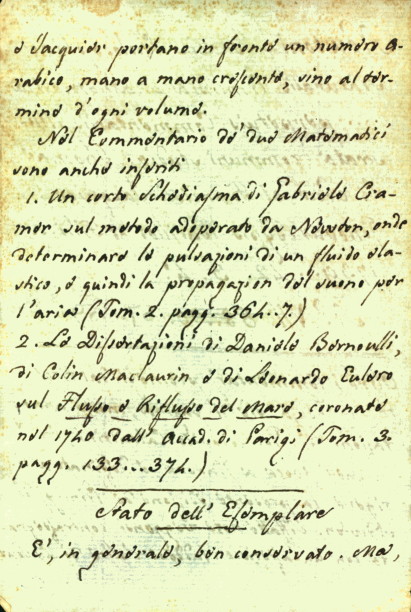 e Jacquier portano in fronte un numero a-
rabico, mano a mano crescente, sino al ter-
mine d'ogni volume.
Nel Commentario de' due Matematici
sono anche inseriti
1. Un corto Schediasma di Gabriele Cra-
mer sul metodo adoperato da Newton, onde
determinare le pulsazioni di un fluido ela-
stico, e quindi la propagazion del suono per
l'aria (Tom. 2. pagg. 364..7.)
2. Le Dissertazioni di Daniele Bernoulli,
di Colin Maclaurin e di Leonardo Eulero
sul Flusso e Riflusso del Mare, coronate
nel 1740 dall' Accad. di Parigi (Tom. 3.
pagg. 133...374.)
Stato dell' Esemplare
E', in generale, ben conservato. Ma,